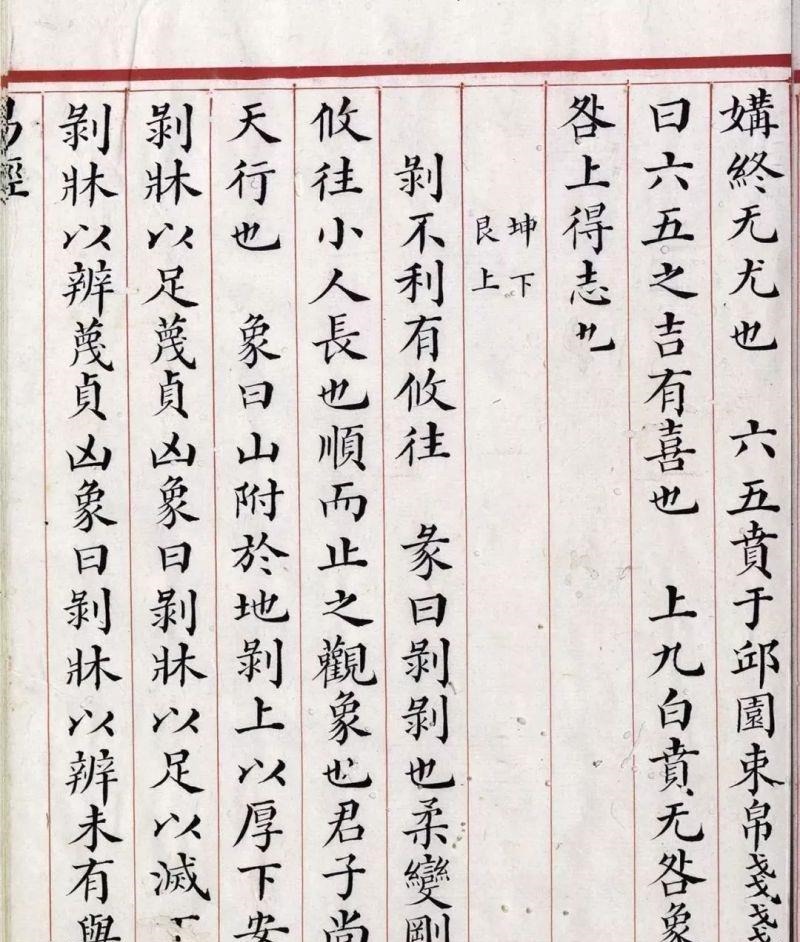 媾終无尤也 六五賁于邱園束帛戔戔
曰六五之吉有喜也 上九白賁无咎象
咎上得志也
坤下
艮上
剝不利有攸往 彖曰剝剝也柔變剛
攸往小人長也順而止之觀象也君子尚
天行也 象曰山附於地剝上以厚下安
剝牀以足蔑貞凶象曰剝牀以足以滅下
剝牀以辨蔑貞凶象曰剝牀以辨未有與
易經